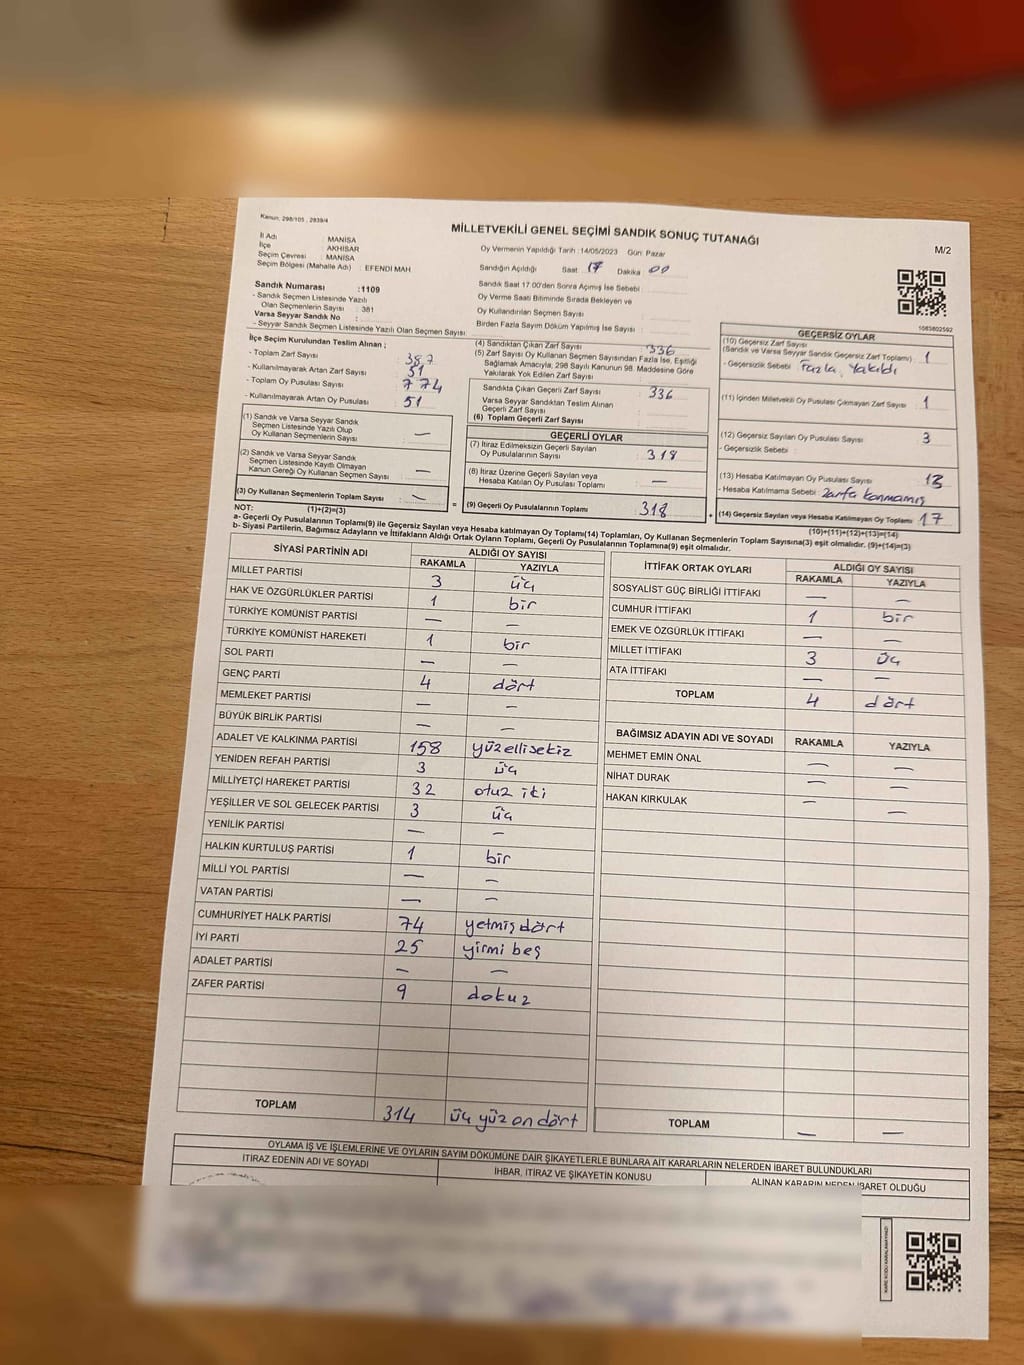 Kanun, 298/105 , 2839/4
MİLLETVEKİLİ GENEL SEÇİMİ SANDIK SONUÇ TUTANAĞI
M/2
İl Adı : MANİSA
İlçe : AKHİSAR
Seçim Çevresi : MANİSA
Seçim Bölgesi (Mahalle Adı) : EFENDİ MAH
Oy Vermenin Yapıldığı Tarih :14/05/2023 Gün: Pazar
Sandığın Açıldığı Saat 17 Dakika 00
Sandık Saat 17.00'den Sonra Açılmış İse Sebebi
Oy Verme Saati Bitiminde Sırada Bekleyen ve
Oy Kullandırılan Seçmen Sayısı
Birden Fazla Sayım Döküm Yapılmış İse Sayısı
Sandık Numarası :1109
- Sandık Seçmen Listesinde Yazılı
Olan Seçmenlerin Sayısı : 381
Varsa Seyyar Sandık No :
- Seyyar Sandık Seçmen Listesinde Yazılı Olan Seçmen Sayısı:
1083802592
İlçe Seçim Kurulundan Teslim Alınan ;
- Toplam Zarf Sayısı : 387
- Kullanılmayarak Artan Zarf Sayısı : 51
- Toplam Oy Pusulası Sayısı : 774
- Kullanılmayarak Artan Oy Pusulası : 51
(1) Sandık ve Varsa Seyyar Sandık
Seçmen Listesinde Yazılı Olup
Oy Kullanan Seçmenlerin Sayısı : —
(2) Sandık ve Varsa Seyyar Sandık
Seçmen Listesinde Kayıtlı Olmayan
Kanun Gereği Oy Kullanan Seçmenlerin Sayısı : —
(3) Oy Kullanan Seçmenlerin Toplam Sayısı : —
(1)+(2)=(3)
(4) Sandıktan Çıkan Zarf Sayısı : 336
(5) Zarf Sayısı Oy Kullanan Seçmen Sayısından Fazla İse, Eşitliği
Sağlamak Amacıyla, 298 Sayılı Kanunun 98. Maddesine Göre
Yakılarak Yok Edilen Zarf Sayısı
Sandıkta Çıkan Geçerli Zarf Sayısı : 336
Varsa Seyyar Sandıktan Teslim Alınan
Geçerli Zarf Sayısı
(6) Toplam Geçerli Zarf Sayısı
GEÇERLİ OYLAR
(7) İtiraz Edilmeksizin Geçerli Sayılan
Oy Pusulalarının Sayısı : 318
(8) İtiraz Üzerine Geçerli Sayılan veya
Hesaba Katılan Oy Pusulası Toplamı : —
= (9) Geçerli Oy Pusulalarının Toplamı : 318
GEÇERSİZ OYLAR
(10) Geçersiz Zarf Sayısı
(Sandık ve Varsa Seyyar Sandık Geçersiz Zarf Toplamı) : 1
- Geçersizlik Sebebi : Fazla, yakıldı
(11) İçinden Milletvekili Oy Pusulası Çıkmayan Zarf Sayısı : 1
(12) Geçersiz Sayılan Oy Pusulası Sayısı : 3
- Geçersizlik Sebebi :
(13) Hesaba Katılmayan Oy Pusulası Sayısı : 13
- Hesaba Katılmama Sebebi : zarfa konmamış
+ (14) Geçersiz Sayılan veya Hesaba Katılmayan Oy Toplamı : 17
(10)+(11)+(12)+(13)=(14)
NOT:
a- Geçerli Oy Pusulalarının Toplamı(9) ile Geçersiz Sayılan veya Hesaba katılmayan Oy Toplamı(14) Toplamları, Oy Kullanan Seçmenlerin Toplam Sayısına(3) eşit olmalıdır. (9)+(14)=(3)
b- Siyasi Partilerin, Bağımsız Adayların ve İttifakların Aldığı Ortak Oyların Toplamı, Geçerli Oy Pusulalarının Toplamına(9) eşit olmalıdır.
SİYASİ PARTİNİN ADI ALDIĞI OY SAYISI
RAKAMLA YAZIYLA
MİLLET PARTİSİ 3 üç
HAK VE ÖZGÜRLÜKLER PARTİSİ 1 bir
TÜRKİYE KOMÜNİST PARTİSİ — —
TÜRKİYE KOMÜNİST HAREKETİ 1 bir
SOL PARTİ — —
GENÇ PARTİ 4 dört
MEMLEKET PARTİSİ — —
BÜYÜK BİRLİK PARTİSİ — —
ADALET VE KALKINMA PARTİSİ 158 yüzellisekiz
YENİDEN REFAH PARTİSİ 3 üç
MİLLİYETÇİ HAREKET PARTİSİ 32 otuz iki
YEŞİLLER VE SOL GELECEK PARTİSİ 3 üç
YENİLİK PARTİSİ — —
HALKIN KURTULUŞ PARTİSİ 1 bir
MİLLİ YOL PARTİSİ — —
VATAN PARTİSİ — —
CUMHURİYET HALK PARTİSİ 74 yetmiş dört
İYİ PARTİ 25 yirmi beş
ADALET PARTİSİ — —
ZAFER PARTİSİ 9 dokuz
TOPLAM 314 üç yüz on dört
İTTİFAK ORTAK OYLARI ALDIĞI OY SAYISI
RAKAMLA YAZIYLA
SOSYALİST GÜÇ BİRLİĞİ İTTİFAKI — —
CUMHUR İTTİFAKI 1 bir
EMEK VE ÖZGÜRLÜK İTTİFAKI — —
MİLLET İTTİFAKI 3 üç
ATA İTTİFAKI — —
TOPLAM 4 dört
BAĞIMSIZ ADAYIN ADI VE SOYADI RAKAMLA YAZIYLA
MEHMET EMİN ÖNAL — —
NİHAT DURAK — —
HAKAN KIRKULAK — —
TOPLAM — —
OYLAMA İŞ VE İŞLEMLERİNE VE OYLARIN SAYIM DÖKÜMÜNE DAİR ŞİKAYETLERLE BUNLARA AİT KARARLARIN NELERDEN İBARET BULUNDUKLARI
İTİRAZ EDENİN ADI VE SOYADI İHBAR, İTİRAZ VE ŞİKAYETİN KONUSU ALINAN KARARIN NEDEN İBARET OLDUĞU